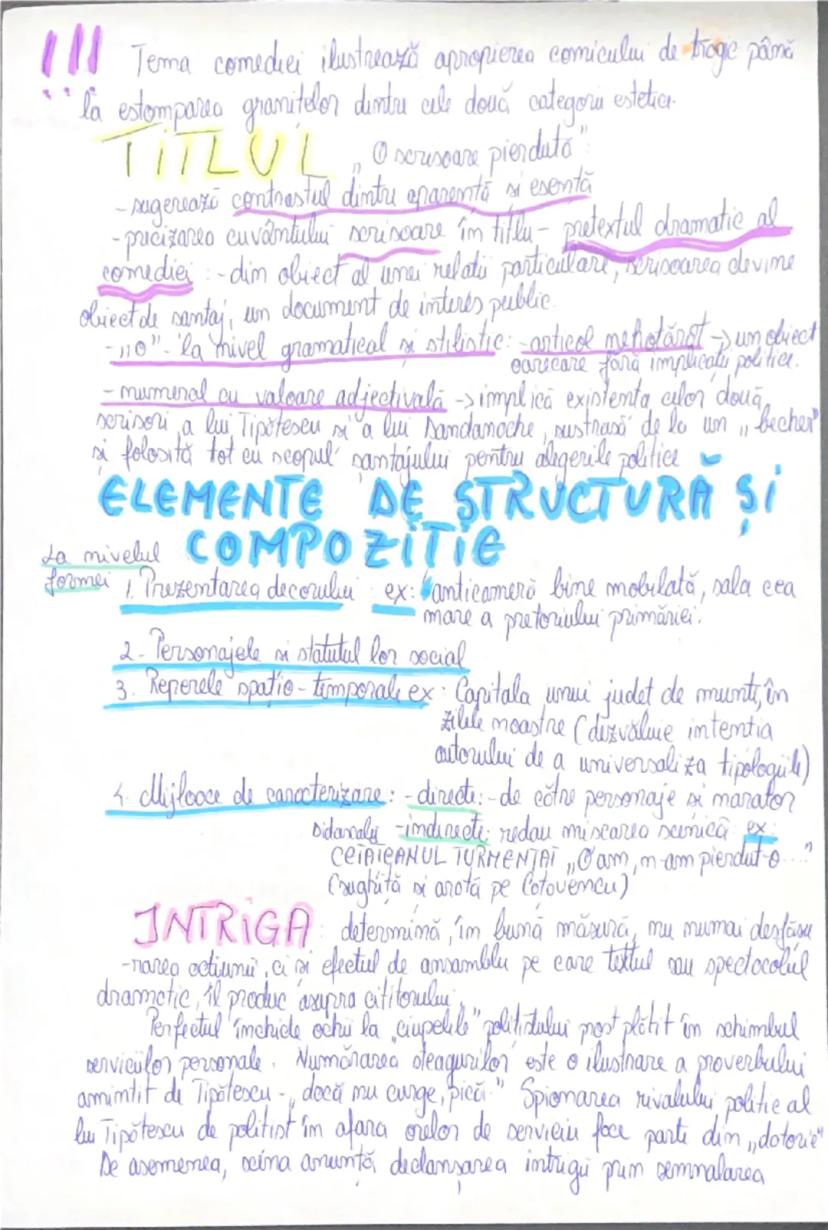 !!! Tema comediei ilustrează apropierea comicului de tragic până
la estomparea granițelor dintre cele două categorii estetice.
TITLUL „O scrisoare pierdută"
- sugerează contrastul dintre aparență și esență
- precizarea cuvântului scrisoare în titlu - pretextul dramatic al
comediei : - din obiect al unei relații particulare, scrisoarea devine
obiect de șantaj, un document de interes public.
- „O" - la nivel gramatical și stilistic : - articol nehotărât -> un obiect
oarecare fără implicații politice.
- numeral cu valoare adjectivală -> implică existența celor două
scrisori, a lui Tipătescu și a lui Dandanache, sustrasă de la un „becher"
și folosită tot cu scopul șantajului pentru alegerile politice
ELEMENTE DE STRUCTURĂ ȘI
COMPOZIȚIE
La nivelul
formei
1. Prezentarea decorului ex: anticameră bine mobilată, sala cea
mare a pretoriului primăriei.
2. Personajele și statutul lor social
3. Reperele spațio-temporale ex: Capitala unui județ de munte, în
zilele noastre (dezvăluie intenția
autorului de a universaliza tipologiile)
4. Mijloace de caracterizare : - directe: - de către personaje și narator
Didascalii - indirecte: redau mișcarea scenică ex:
CETĂȚEANUL TURMENTAT „O am, n-am pierdut-o..."
(sughiță și arată pe Cațavencu)
INTRIGA : determină, în bună măsură, nu numai desfășu
-rarea acțiunii, ci și efectul de ansamblu pe care textul sau spectacolul
dramatic, îl produc asupra cititorului.
Perfectul închide ochii la „ciupelile" polițistului prost plătit în schimbul
serviciilor personale. Numărarea steagurilor este o ilustrare a proverbului
amintit de Tipătescu - „dacă nu curge, pică." Spionarea rivalului politic al
lui Tipătescu de polițist în afara orelor de serviciu face parte din „datorie"
De asemenea, scena anunță declanșarea intrigii prin semnalarea